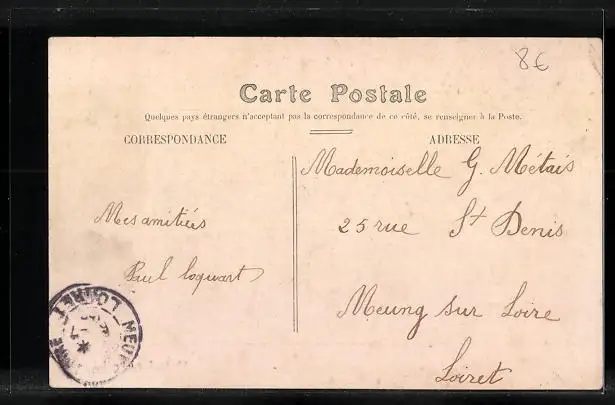 8€
Carte Postale
Quelques pays étrangers n'acceptant pas la correspondance de ce côté, se renseigner à la Poste.
CORRESPONDANCE
ADRESSE
Mes amitiés
Paul
Mademoiselle G. Métais
25 rue St Denis
Meung sur Loire
Loiret
LOIRET
MEUNG